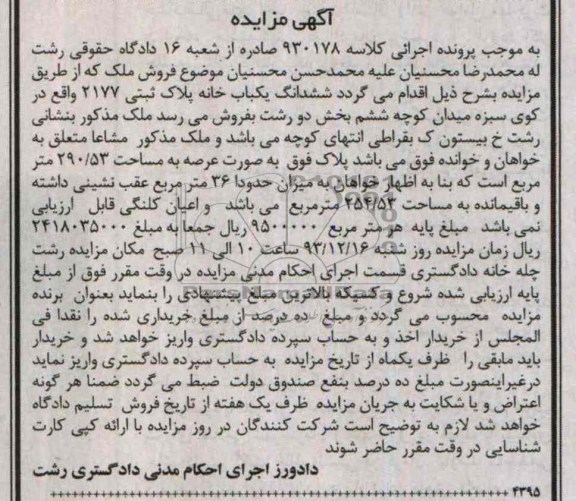 آگهی مزایده
به موجب پرونده اجرائی کلاسه ۹۳۰۱۷۸ صادره از شعبه ۱۶ دادگاه حقوقی رشت
له محمدرضا محسنیان علیه محمدحسن محسنیان موضوع فروش ملک که از طریق
مزایده بشرح ذیل اقدام می گردد ششدانگ یکباب خانه پلاک ثبتی ۲۱۷۷ واقع در
کوی سبزه میدان کوچه ششم بخش دو رشت بفروش می رسد ملک مذکور بنشانی
رشت خ بیستون ک بقراطی انتهای کوچه می باشد و ملک مذکور مشاعا متعلق به
خواهان و خوانده فوق می باشد پلاک فوق به صورت عرصه به مساحت ۲۹۰/۵۳ متر
مربع است که بنا به اظهار خواهان به میزان حدودا ۳۶ متر مربع عقب نشینی داشته
و باقیمانده به مساحت ۲۵۴/۵۳ مترمربع می باشد و اعیان کلنگی قابل ارزیابی
نمی باشد مبلغ پایه هر متر مربع ۹۵۰۰۰۰۰ ریال جمعا به مبلغ ۲۴۱۸۰۳۵۰۰۰
ریال زمان مزایده روز شنبه ۹۳/۱۲/۱۶ ساعت ۱۰ الی ۱۱ صبح مکان مزایده رشت
چله خانه دادگستری قسمت اجرای احکام مدنی مزایده در وقت مقرر فوق از مبلغ
پایه ارزیابی شده شروع و کسیکه بالاترین مبلغ پیشنهادی را بنماید بعنوان برنده
مزایده محسوب می گردد و مبلغ ده درصد از مبلغ خریداری شده را نقدا فی
المجلس از خریدار اخذ و به حساب سپرده دادگستری واریز خواهد شد و خریدار
باید مابقی را ظرف یکماه از تاریخ مزایده به حساب سپرده دادگستری واریز نماید
درغیراینصورت مبلغ ده درصد بنفع صندوق دولت ضبط می گردد ضمنا هر گونه
اعتراض و یا شکایت به جریان مزایده ظرف یک هفته از تاریخ فروش تسلیم دادگاه
خواهد شد لازم به توضیح است شرکت کنندگان در روز مزایده با ارائه کپی کارت
شناسایی در وقت مقرر حاضر شوند
دادورز اجرای احکام مدنی دادگستری رشت
۴۳۹۵